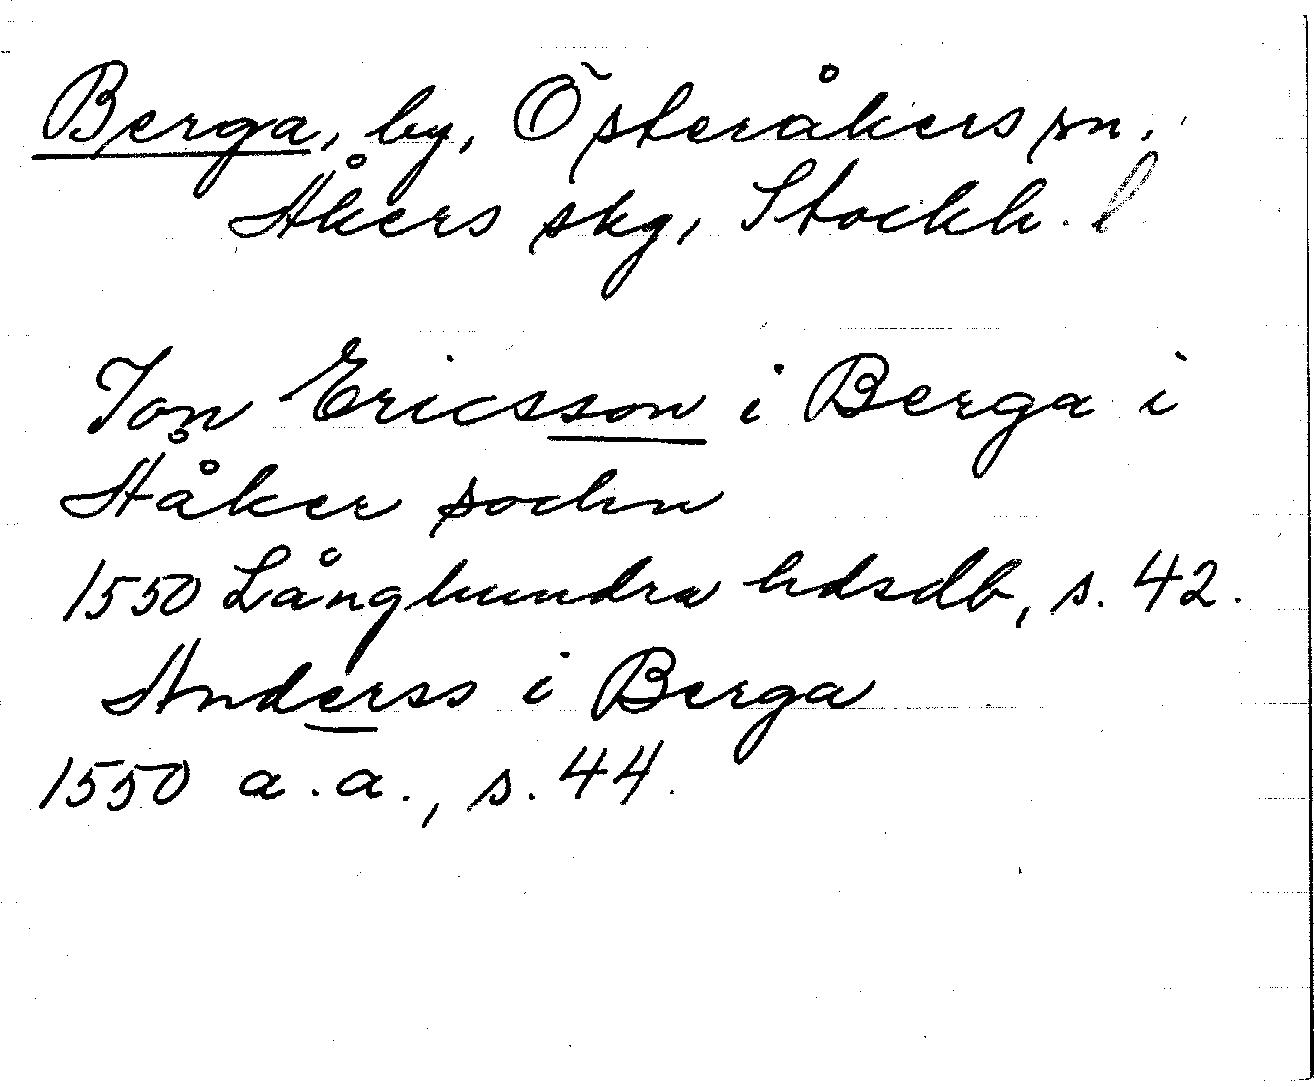 Berga, by, Österåkers sn.
Åkers skg, Stockh. l
Jon Ericsson i Berga i
Ååker sochn
1550 Långhundra hdsdb, s. 42.
Anderss i Berga
1550 a.a., s. 44.